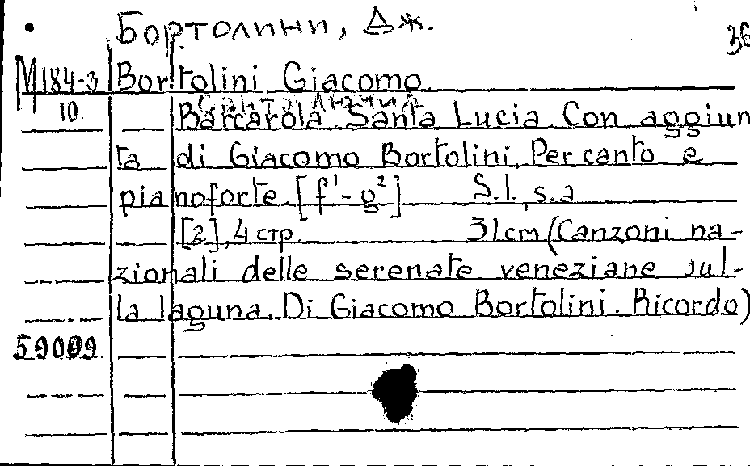 Бортолини, Дж.
36
М184-3 Bortolini Giacomo.
10 Barcarola Santa Lucia Con aggiun
ta di Giacomo Bortolini. Per canto e
pianoforte. [f¹-g²] S.l., s.a
[2], 4 стр. 31cm (Canzoni na-
zionali delle serenate veneziane sul-
la laguna. Di Giacomo Bortolini. Ricordo)
59009